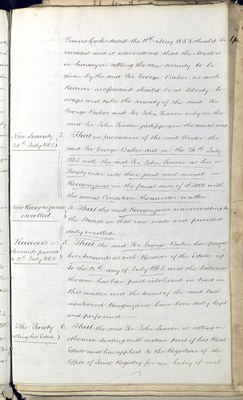 Trevor Cocks dated the 11th May 1853 should be
vacated and it was ordered that the Masters
in Lunacy in settling the new security to be
given by the said Sir George Baker as such
Receiver as aforesaid should be at liberty to
accept and take the security of the said Sir
George Baker and Sir John Simeon only on the
said Sir John Simeon justifying in the usual
New Security
28th July 1863
3. That in pursuance of the said Order the
said Sir George Baker did on the 28th July
1863 with the said Sir John Simeon as his
Surety enter into their joint and several
Recognizance in the penal sum of £ with
the usual Condition thereunder written
New Recognizance
enrolled
4. That the said Recognizance was according to
the Statute in that case made and provided
duly enrolled
Receiver's
Account passed
to 15th July 1863
5. That the said Sir George Baker has passed
his accounts as such Receiver of the Estate up
to the 15th day of July 1863 and the balance
thereon has been paid into Court in trust in
this matter and the terms of the said last
mentioned Recognizance have been duly kept
and performed
The Surety
selling his Estate
6. That the said Sir John Simeon is selling or
otherwise dealing with certain parts of his Real
Estate and has applied to the Registrar of the
Office of Land Registry for an